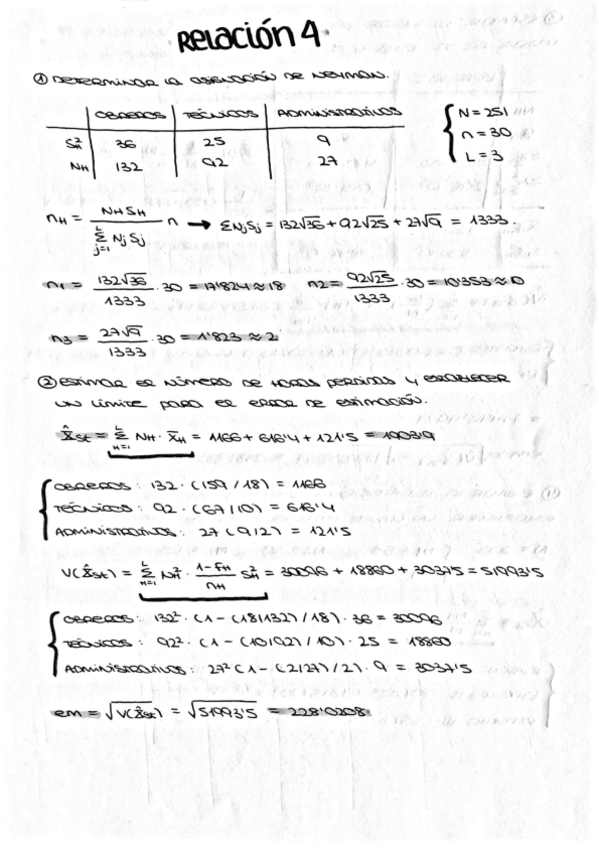 Relación 4.
① DETERMINAR LA ASIGNACIÓN DE NEYMAN.
OBREROS | TÉCNICOS | ADMINISTRATIVOS
S²H | 36 | 25 | 9
NH | 132 | 92 | 27
N = 251
n = 30
L = 3
nH = NH SH / Σ(j=1, L) Nj Sj · n → ΣNjSj = 132√36 + 92√25 + 27√9 = 1333.
n1 = 132√36 / 1333 · 30 = 17'824 ≈ 18 n2 = 92√25 / 1333 · 30 = 10'353 ≈ 10
n3 = 27√9 / 1333 · 30 = 1'823 ≈ 2
② ESTIMAR EL NÚMERO DE HORAS PERDIDAS Y ESTABLECER
UN LÍMITE PARA EL ERROR DE ESTIMACIÓN.
X̂st = Σ(H=1, L) NH · x̄H = 1166 + 616'4 + 121'5 = 1903'9
OBREROS : 132 · (159 / 18) = 1166
TÉCNICOS : 92 · (67 / 10) = 616'4
ADMINISTRATIVOS : 27 (9/2) = 121'5
V(X̂st) = Σ(H=1, L) N²H · 1-fH / nH S²H = 30096 + 18860 + 3037'5 = 51993'5
OBREROS : 132² · (1 - (18/132) / 18) · 36 = 30096
TÉCNICOS : 92² · (1 - (10/92) / 10) · 25 = 18860
ADMINISTRATIVOS : 27² (1 - (2/27) / 2) · 9 = 3037'5
em = √V(X̂st) = √51993'5 = 228'0208